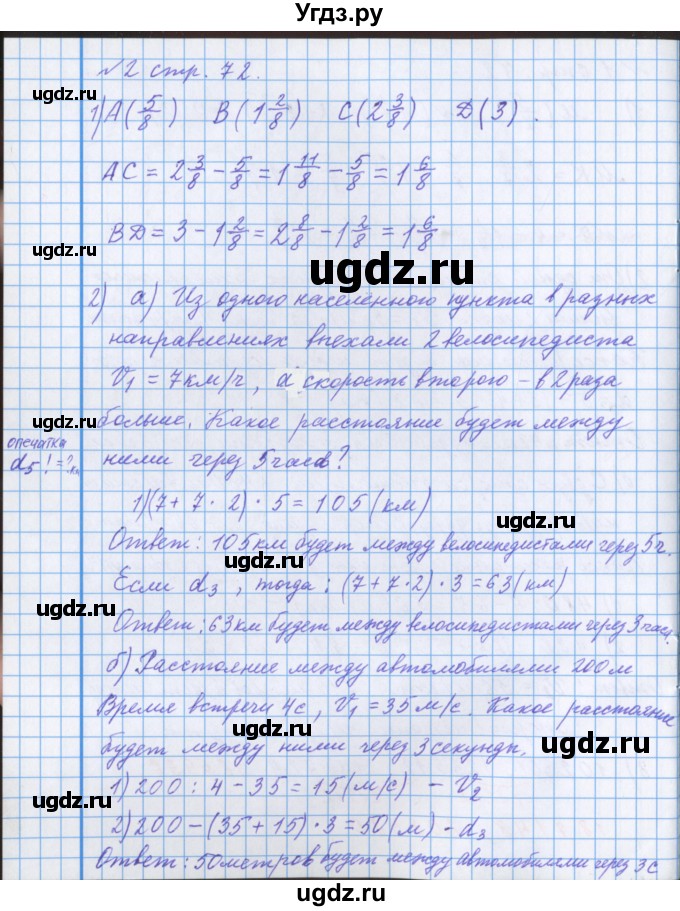 Угдз.ру
№2 стр. 72.
ugdz.ru ugdz.ru
1) A(5/8) B(1 2/8) C(2 3/8) Д(3).
AC = 2 3/8 − 5/8 = 1 11/8 − 5/8 = 1 6/8
ugdz.ru
BД = 3 − 1 2/8 = 2 8/8 − 1 2/8 = 1 6/8
ugdz.ru
2) а) Из одного населённого пункта в разных
направлениях выехали 2 велосипедиста
V₁ = 7 км/ч, а скорость второго – в 2 раза
ugdz.ru
больше. Какое расстояние будет между
опечатка
d₅! = ? км
ними через 5 часов?
1) (7 + 7 · 2) · 5 = 105 (км)
ugdz.ru
Ответ: 105 км будет между велосипедистами через 5 ч.
Если d₃, тогда: (7 + 7 · 2) · 3 = 63 (км)
ugdz.ru
Ответ: 63 км будет между велосипедистами через 3 часа.
б) Расстояние между автомобилями 200 м
Время встречи 4 с, V₁ = 35 м/с. Какое расстояние
ugdz.ru
будет между ними через 3 секунды.
1) 200 : 4 − 35 = 15 (м/с) – V₂
ugdz.ru
2) 200 − (35 + 15) · 3 = 50 (м) - d₃
Ответ: 50 метров будет между автомобилями через 3 с
ugdz.ru ugdz.ru